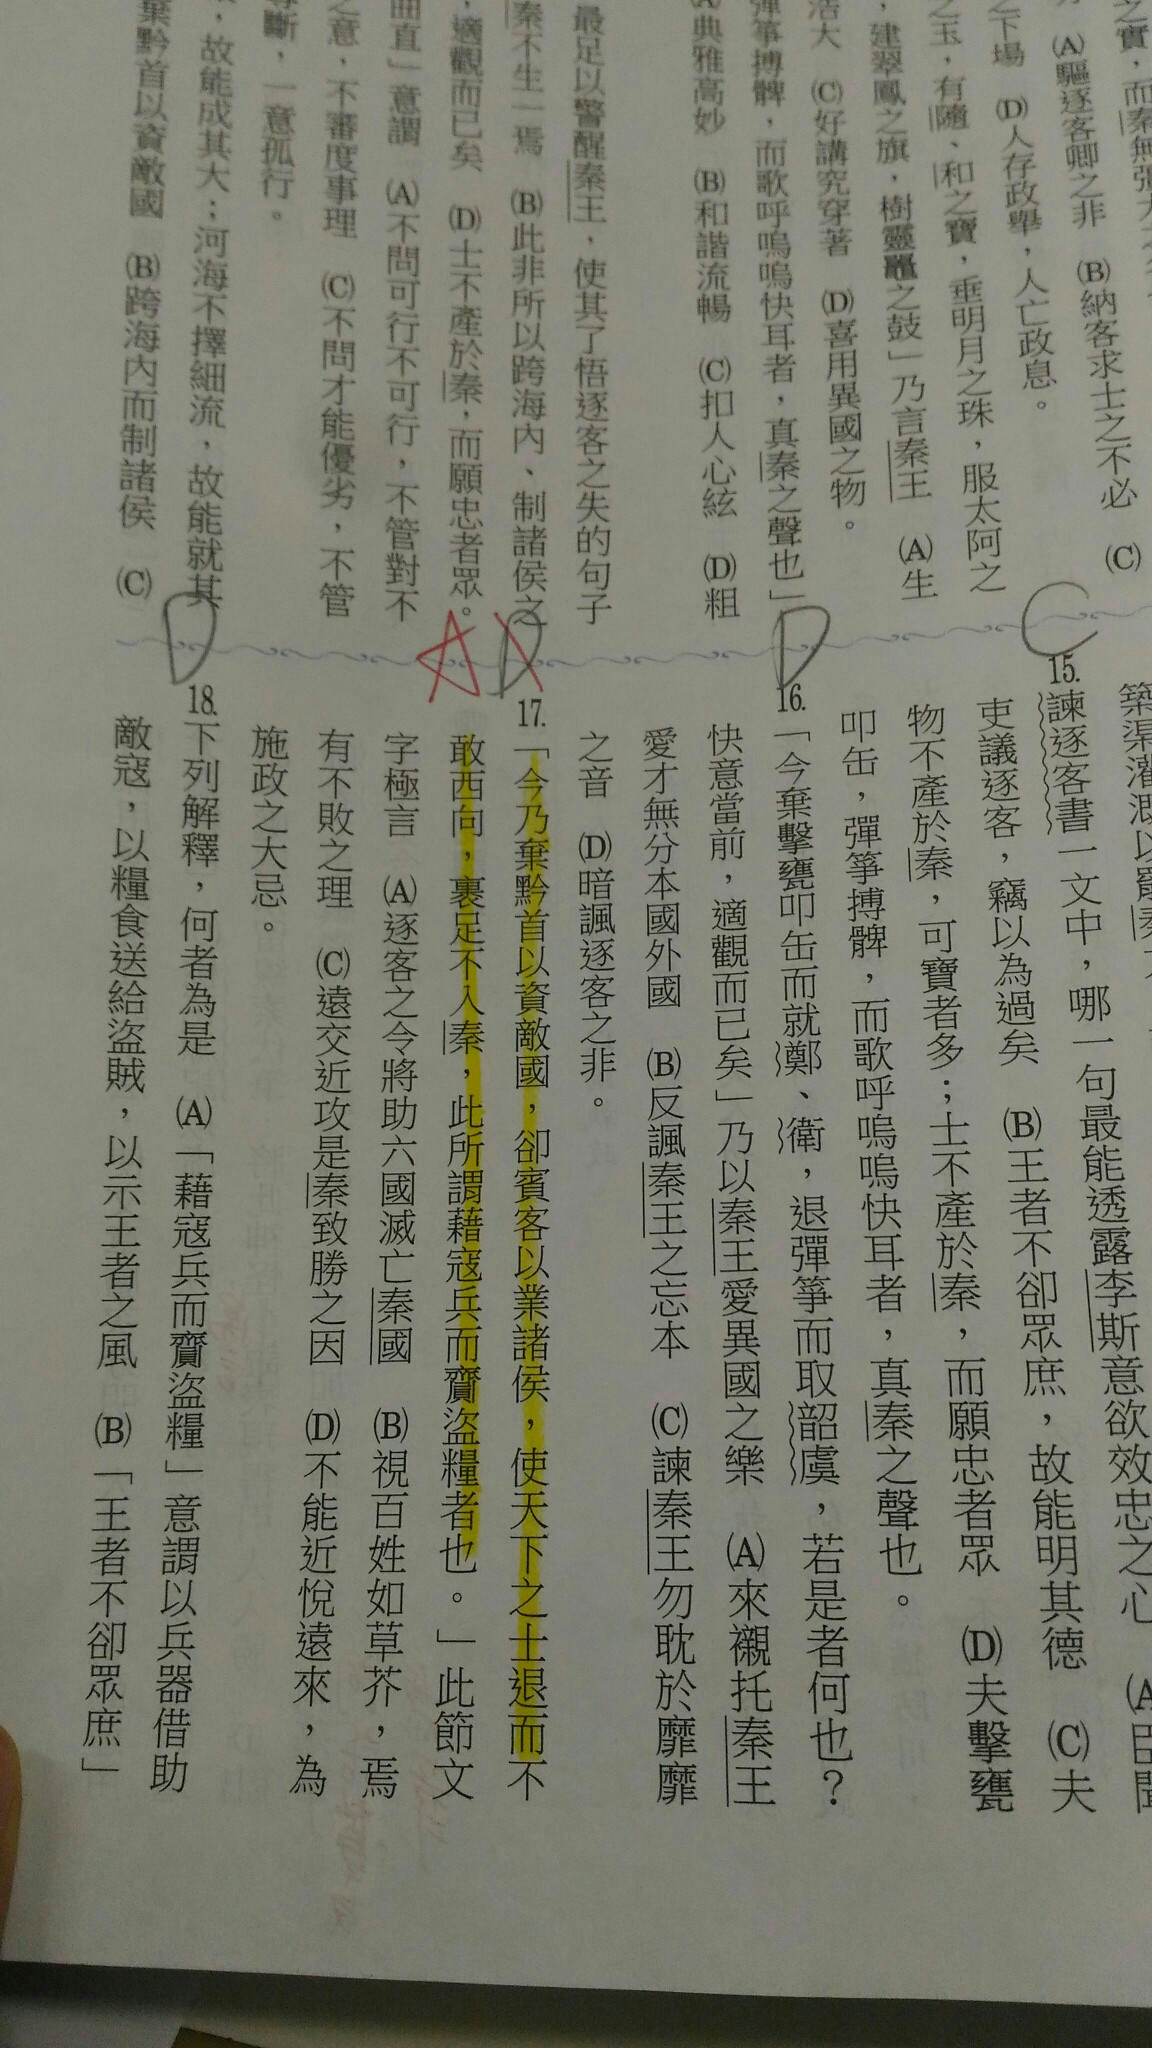 之實，而秦無強大之
(A)驅逐客卿之非　(B)納客求士之不必　(C)
之下場　(D)人存政舉，人亡政息。
之玉，有隨、和之寶，垂明月之珠，服太阿之
，建翠鳳之旗，樹靈鼉之鼓」乃言秦王　(A)生
浩大　(C)好講究穿著　(D)喜用異國之物。
彈箏搏髀，而歌呼嗚嗚快耳者，真秦之聲也」
(A)典雅高妙　(B)和諧流暢　(C)扣人心絃　(D)粗
最足以警醒秦王，使其了悟逐客之失的句子
秦不生一焉　(B)此非所以跨海內、制諸侯之
，適觀而已矣　(D)士不產於秦，而願忠者眾。
曲直」意謂　(A)不問可行不可行，不管對不
之意，不審度事理　(C)不問才能優劣，不管
專斷，一意孤行。
，故能成其大；河海不擇細流，故能就其
棄黔首以資敵國　(B)跨海內而制諸侯　(C)
C
D
D
A
D
築渠灌溉以罷秦
15.諫逐客書一文中，哪一句最能透露李斯意欲效忠之心　(A)臣聞
吏議逐客，竊以為過矣　(B)王者不卻眾庶，故能明其德　(C)夫
物不產於秦，可寶者多；士不產於秦，而願忠者眾　(D)夫擊甕
叩缶，彈箏搏髀，而歌呼嗚嗚快耳者，真秦之聲也。
16.「今棄擊甕叩缶而就鄭、衛，退彈箏而取韶虞，若是者何也？
快意當前，適觀而已矣」乃以秦王愛異國之樂　(A)來襯托秦王
愛才無分本國外國　(B)反諷秦王之忘本　(C)諫秦王勿耽於靡靡
之音　(D)暗諷逐客之非。
17.「今乃棄黔首以資敵國，卻賓客以業諸侯，使天下之士退而不
敢西向，裹足不入秦，此所謂藉寇兵而齎盜糧者也。」此節文
字極言　(A)逐客之令將助六國滅亡秦國　(B)視百姓如草芥，焉
有不敗之理　(C)遠交近攻是秦致勝之因　(D)不能近悅遠來，為
施政之大忌。
18.下列解釋，何者為是　(A)「藉寇兵而齎盜糧」意謂以兵器借助
敵寇，以糧食送給盜賊，以示王者之風　(B)「王者不卻眾庶」